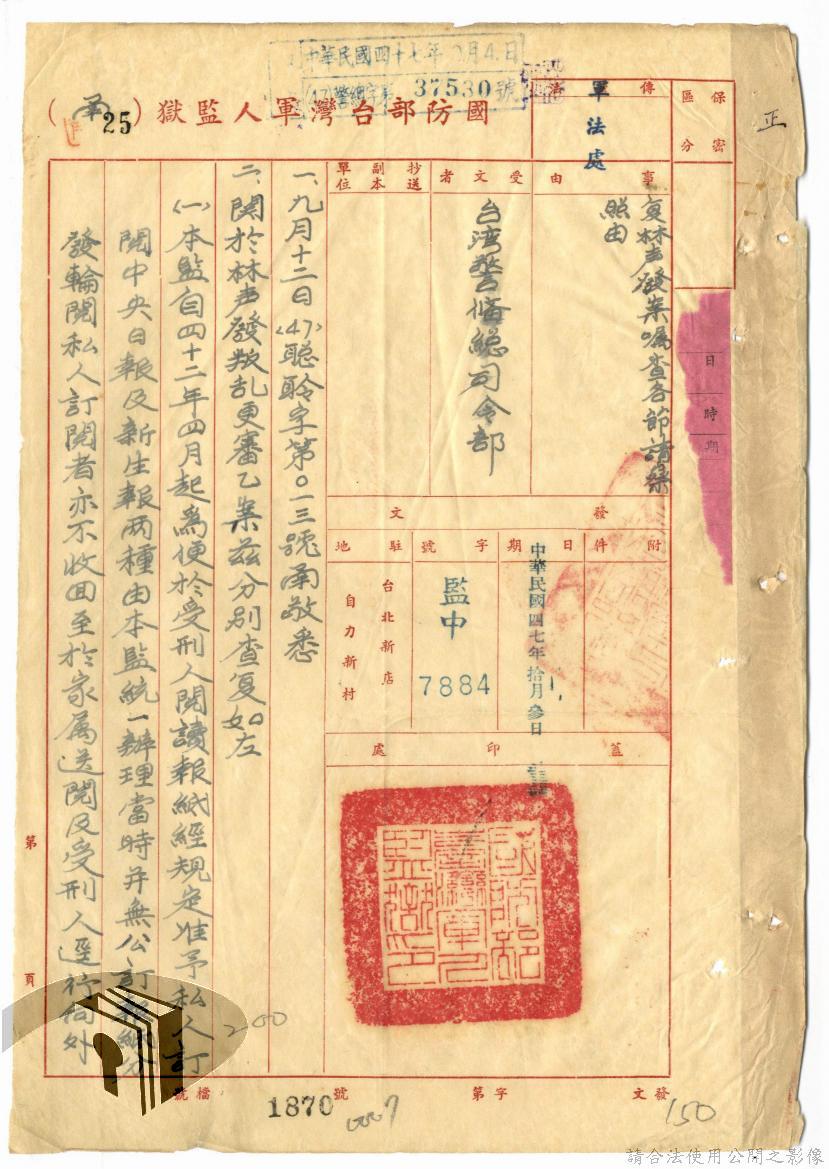 正
中華民國四十七年 月4日
(47)警總字第37530號
國防部台灣軍人監獄（函）
25
保密
區分
傳
軍法處
事由
复林声發案嘱查各節請察
照由
受文者
台湾警俻總司令部
抄送
副本
單位
日
時
期
發文
附件
日期
中華民國四七年拾月參日
字號
監中
7884
駐地
台北新店
自力新村
蓋印處
國防部
臺灣軍人
監獄印
一、九月十二日(47)聪聆字第〇一三號函敬悉
二、関於林声發叛乱更審乙案茲分别查复如左
(一)本監自四十二年四月起為便於受刑人閱讀報紙經規定准予私人订
閱中央日報及新生報两種由本監統一辦理當時并無公訂報紙分
發輪閱私人訂閱者亦不收回至於家属送閱及受刑人逕行向外
200
第 頁
發文 字第 號
檔號
1870
0007
150
請合法使用公開之影像